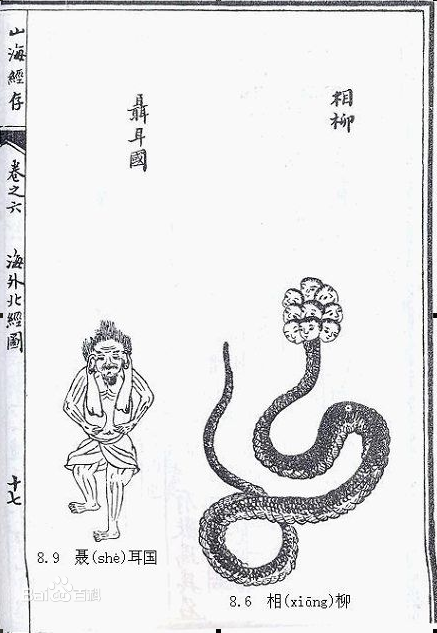 山海經存
卷之六
海外北經圖
十七
相柳
聶耳國
8.9 聂(shè)耳国
8.6 相(xiāng)柳
Bai百科